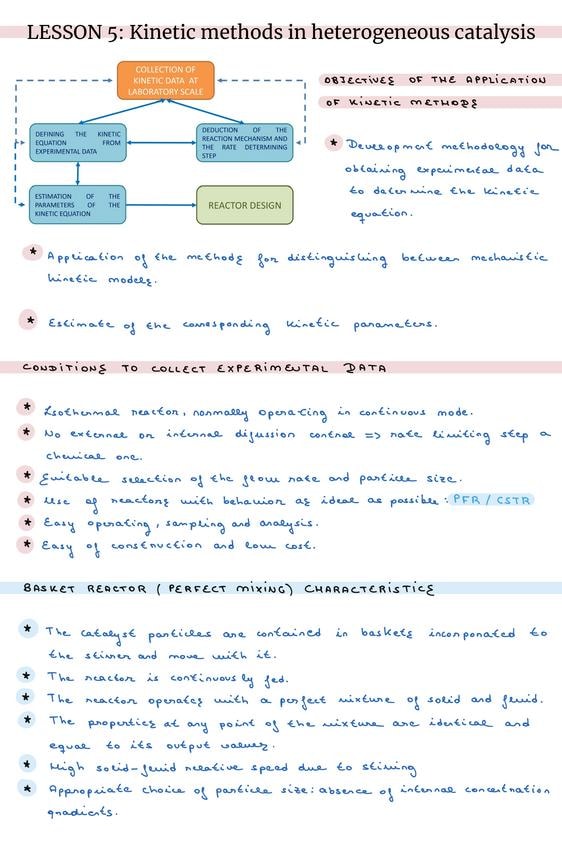 LESSON 5: Kinetic methods in heterogeneous catalysis
COLLECTION OF
KINETIC DATA AT
LABORATORY SCALE
DEFINING THE KINETIC
EQUATION FROM
EXPERIMENTAL DATA
DEDUCTION OF THE
REACTION MECHANISM AND
THE RATE DETERMINING
STEP
ESTIMATION OF THE
PARAMETERS OF THE
KINETIC EQUATION
REACTOR DESIGN
OBJECTIVES OF THE APPLICATION
OF KINETIC METHODS
* Development methodology for
obtaining experimental data
to determine the kinetic
equation.
* Application of the methods for distinguishing between mechanistic
kinetic models.
* Estimate of the corresponding kinetic parameters.
CONDITIONS TO COLLECT EXPERIMENTAL DATA
* Isothermal reactor, normally operating in continuous mode.
* No external or internal difussion control => rate limiting step a
chemical one.
* Suitable selection of the flow rate and particle size.
* Use of reactors with behavior as ideal as possible: PFR / CSTR
* Easy operating, sampling and analysis.
* Easy of construction and low cost.
BASKET REACTOR (PERFECT MIXING) CHARACTERISTICS
* The catalyst particles are contained in baskets incorporated to
the stirrer and move with it.
* The reactor is continuously fed.
* The reactor operates with a perfect mixture of solid and fluid.
* The properties at any point of the mixture are identical and
equal to its output values.
* High solid-fluid relative speed due to stirring
* Appropriate choice of particle size: absence of internal concentration
gradients.